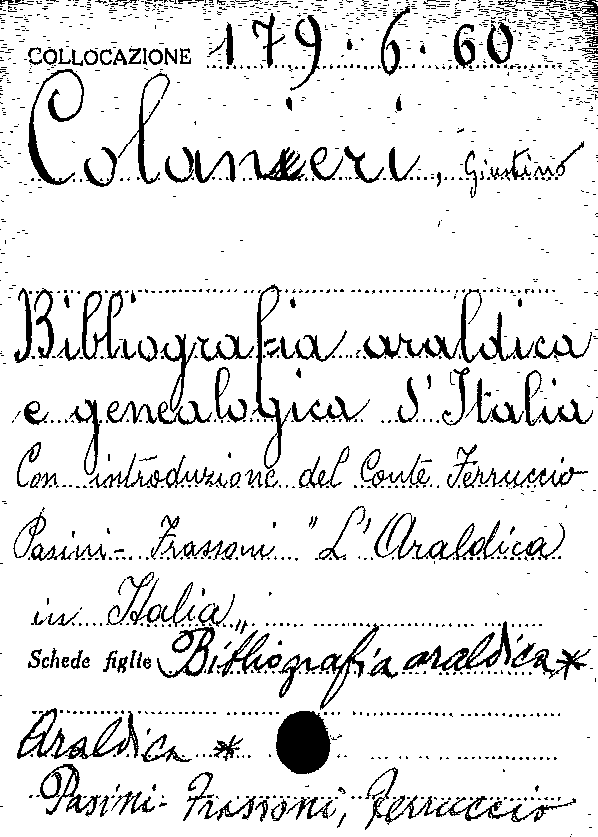 COLLOCAZIONE 179.6.60
Colanieri, Giustino
Bibliografia araldica
e genealogica d'Italia
Con introduzione del Conte Ferruccio
Pasini-Frassoni "L'Araldica
in Italia„
Schede figlie Bibliografia araldica *
Araldica *
Pasini-Frassoni, Ferruccio